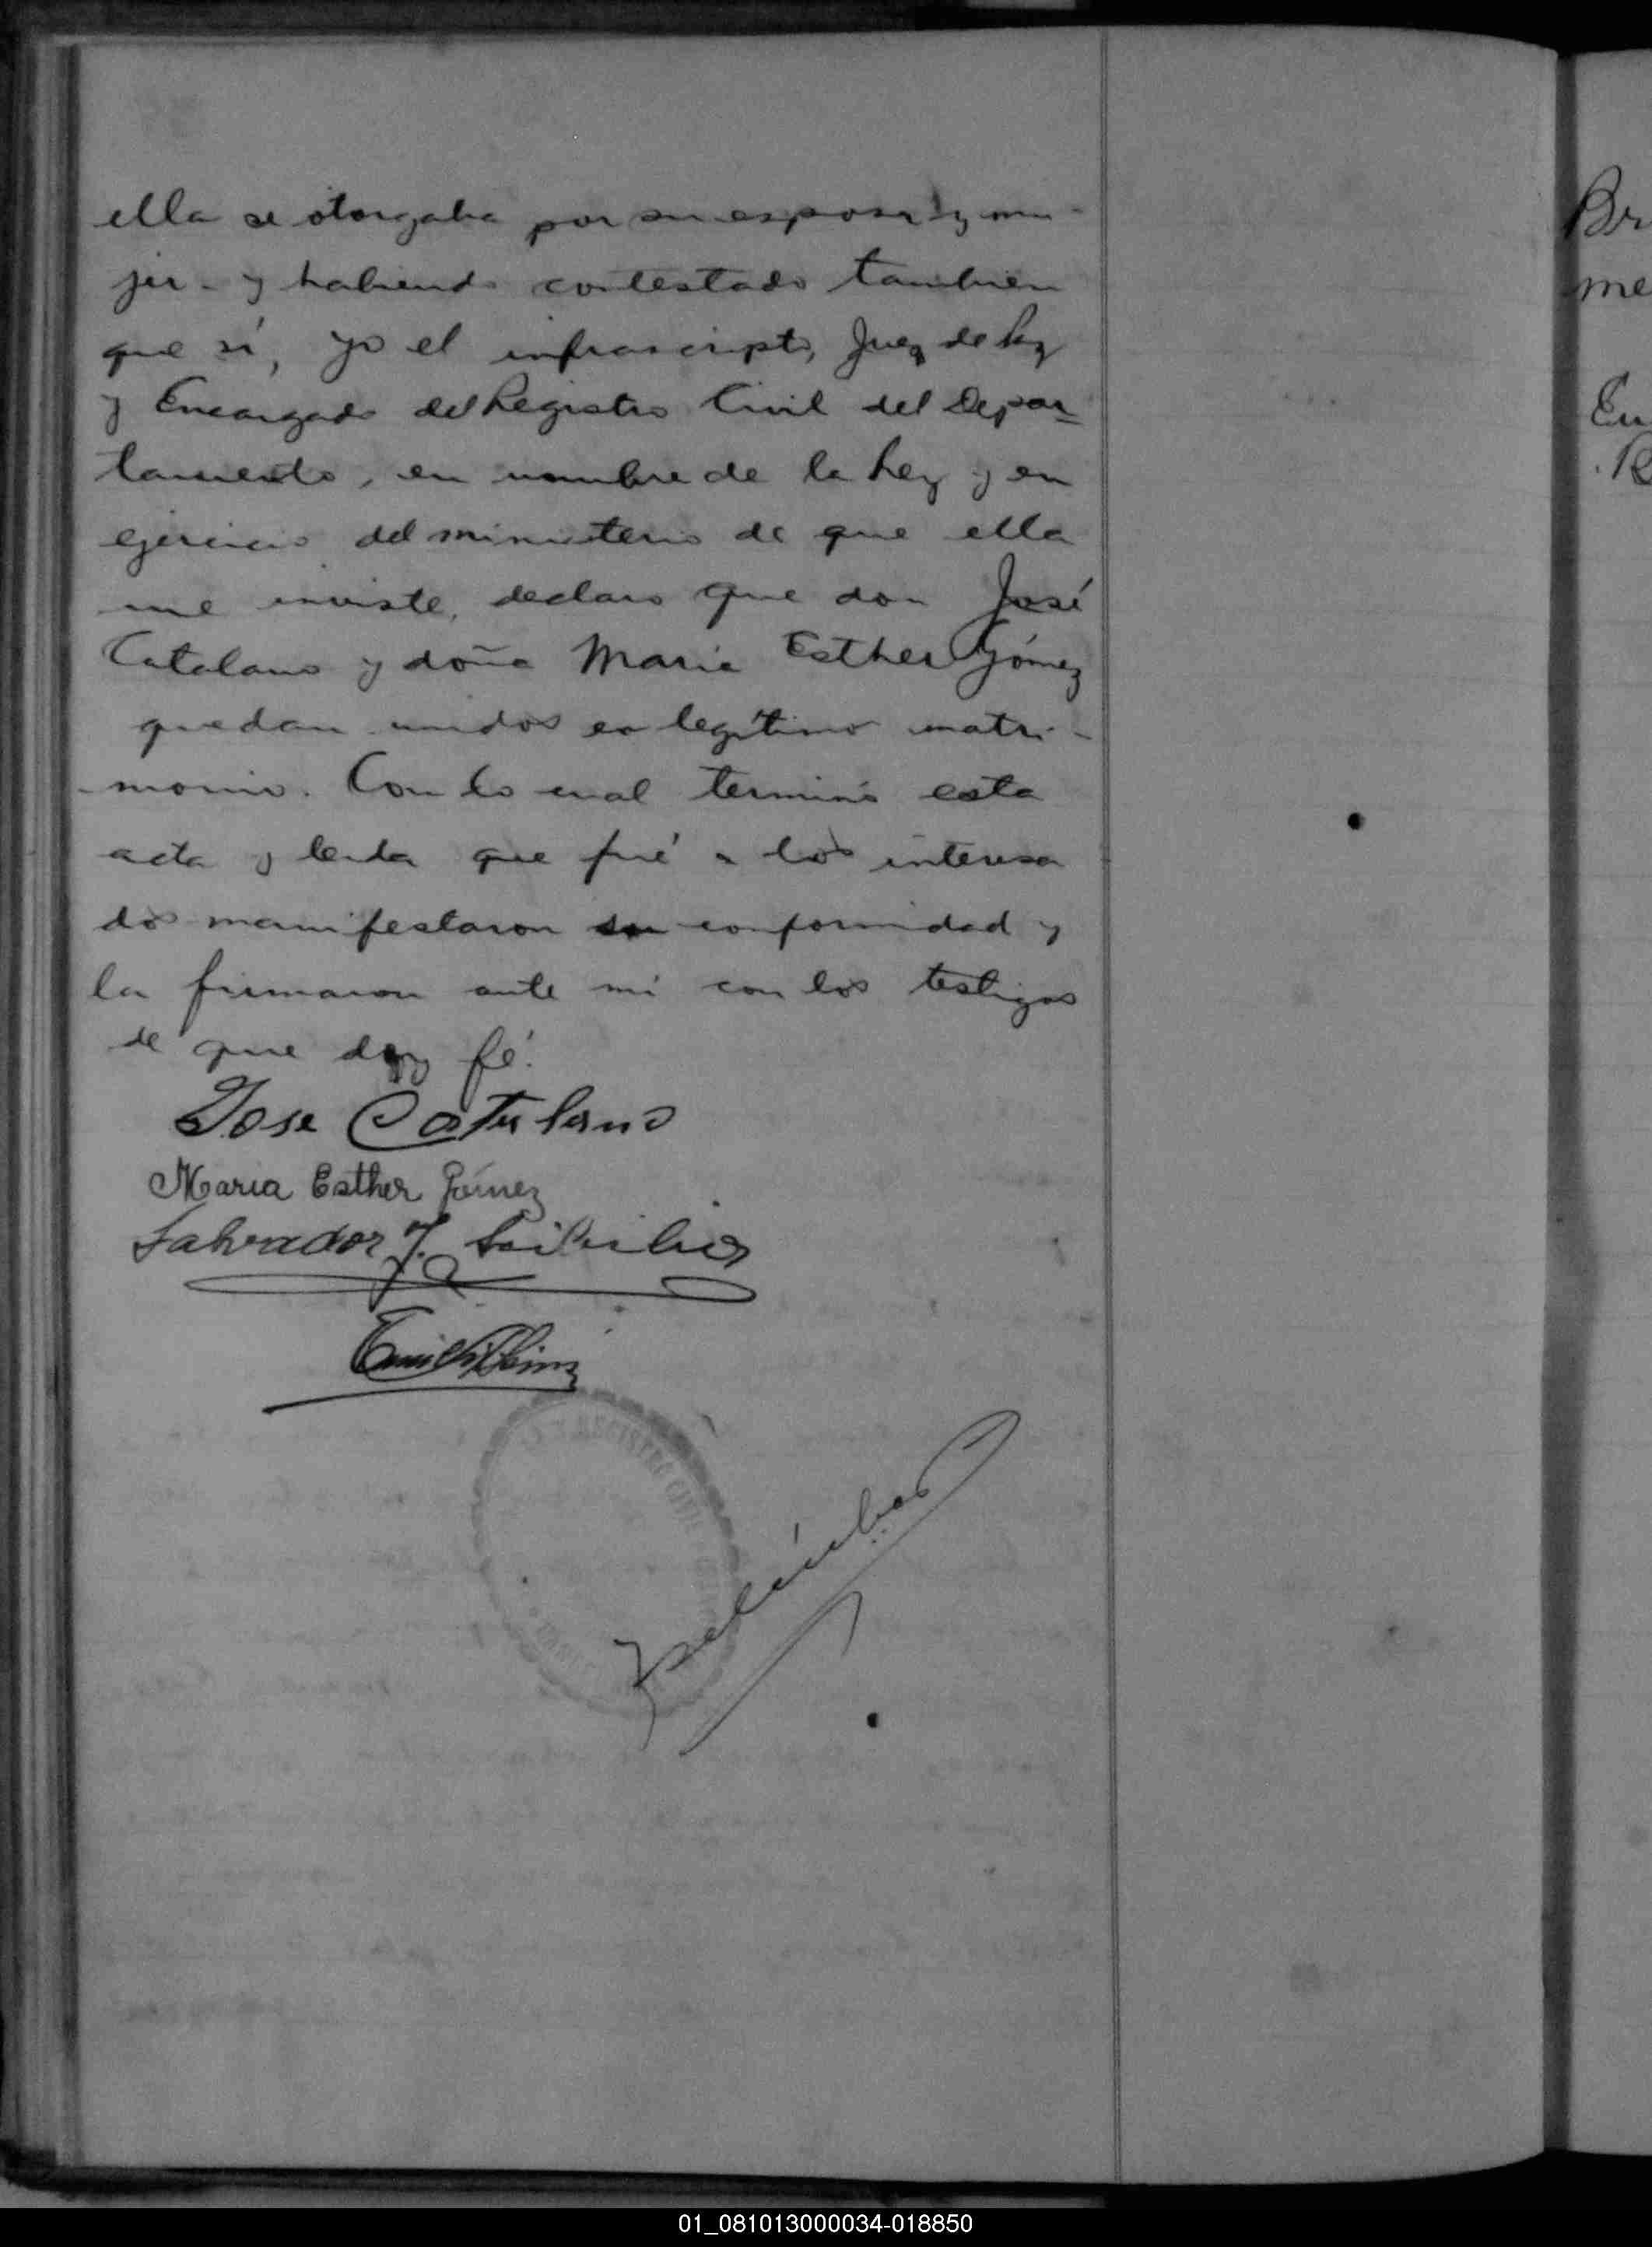 ella se otorgaba por su esposa y mu-
jer - y habiendo contestado tambien
que sí, yo el infrascripto, Juez de Paz
y Encargado del Registro Civil del Depar-
tamento, en nombre de la Ley y en
ejercicio del ministerio de que ella
me inviste, declaro que don José
Catalano y doña Maria Esther Gómez
quedan unidos en legítimo matri-
monio. Con lo cual terminó esta
acta y leida que fué a los interesa
dos manifestaron su conformidad y
la firmaron ante mi con los testigos
de que doy fé.
Jose Catalano
Maria Esther Gómez
Salvador J.
REGISTRO CIVIL
Br
me
En
R
01_081013000034-018850